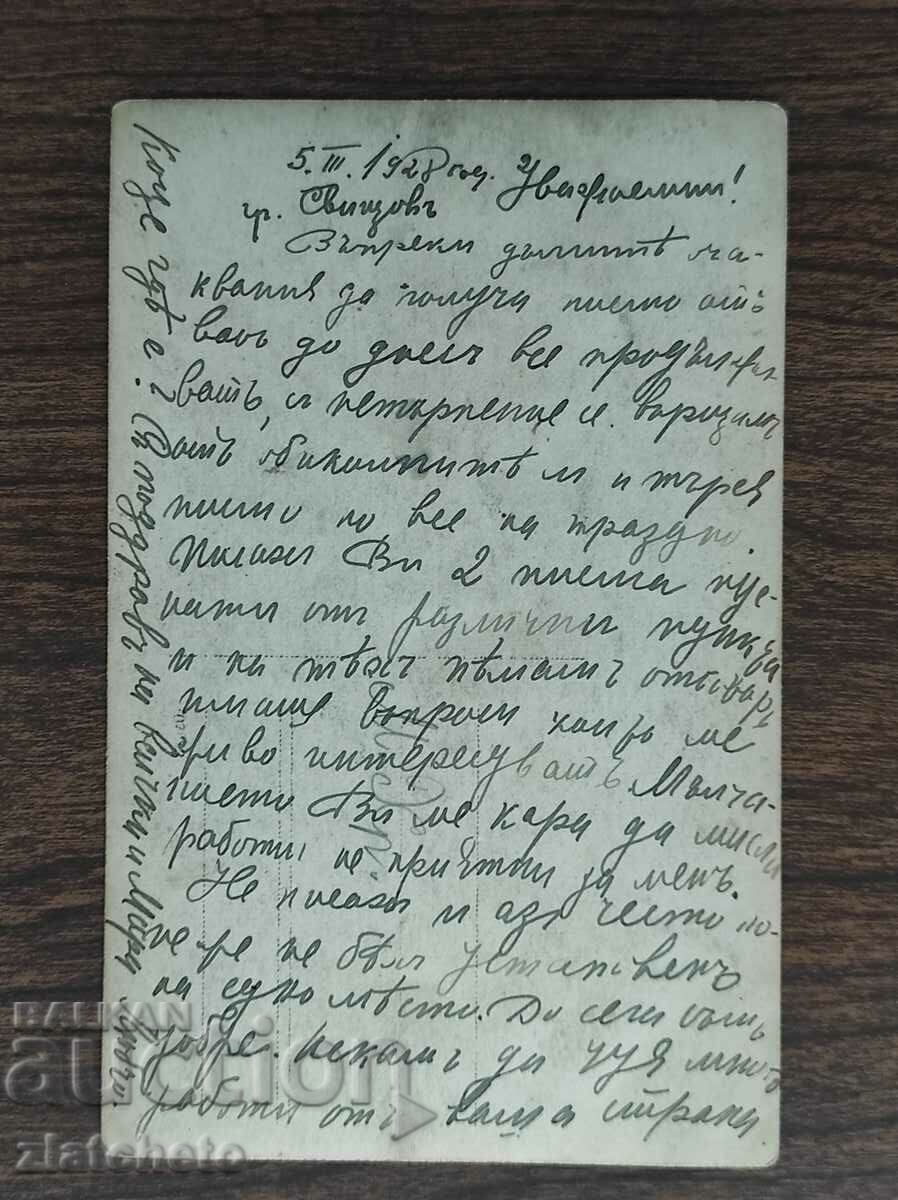 5.III.1928 год. Уважаеми!
гр. Свищовъ
Въпреки дългитѣ оча-
квания да получа писмо отъ
Васъ до днесъ все продължа-
ватъ, съ нетърпение се
отъ обиколкитѣ си и търся
писмо но все на праздно.
Писахъ Ви 2 писма
нати отъ различни пунктове
и на тѣхъ нѣмамъ отговоръ
имаше въпроси които ме
живо интересуватъ Мълча-
нието Ви ме кара да мисля
работи не приятни за менъ.
Не писахъ и азъ често по-
не же не бѣх установенъ
на едно мѣсто. До сега съмъ
добре. Искамъ да чуя много
работи отъ ваша страна
Коце гдѣ е? Поздравъ на всички и Мари
BALKAN
auction
zlatcheto